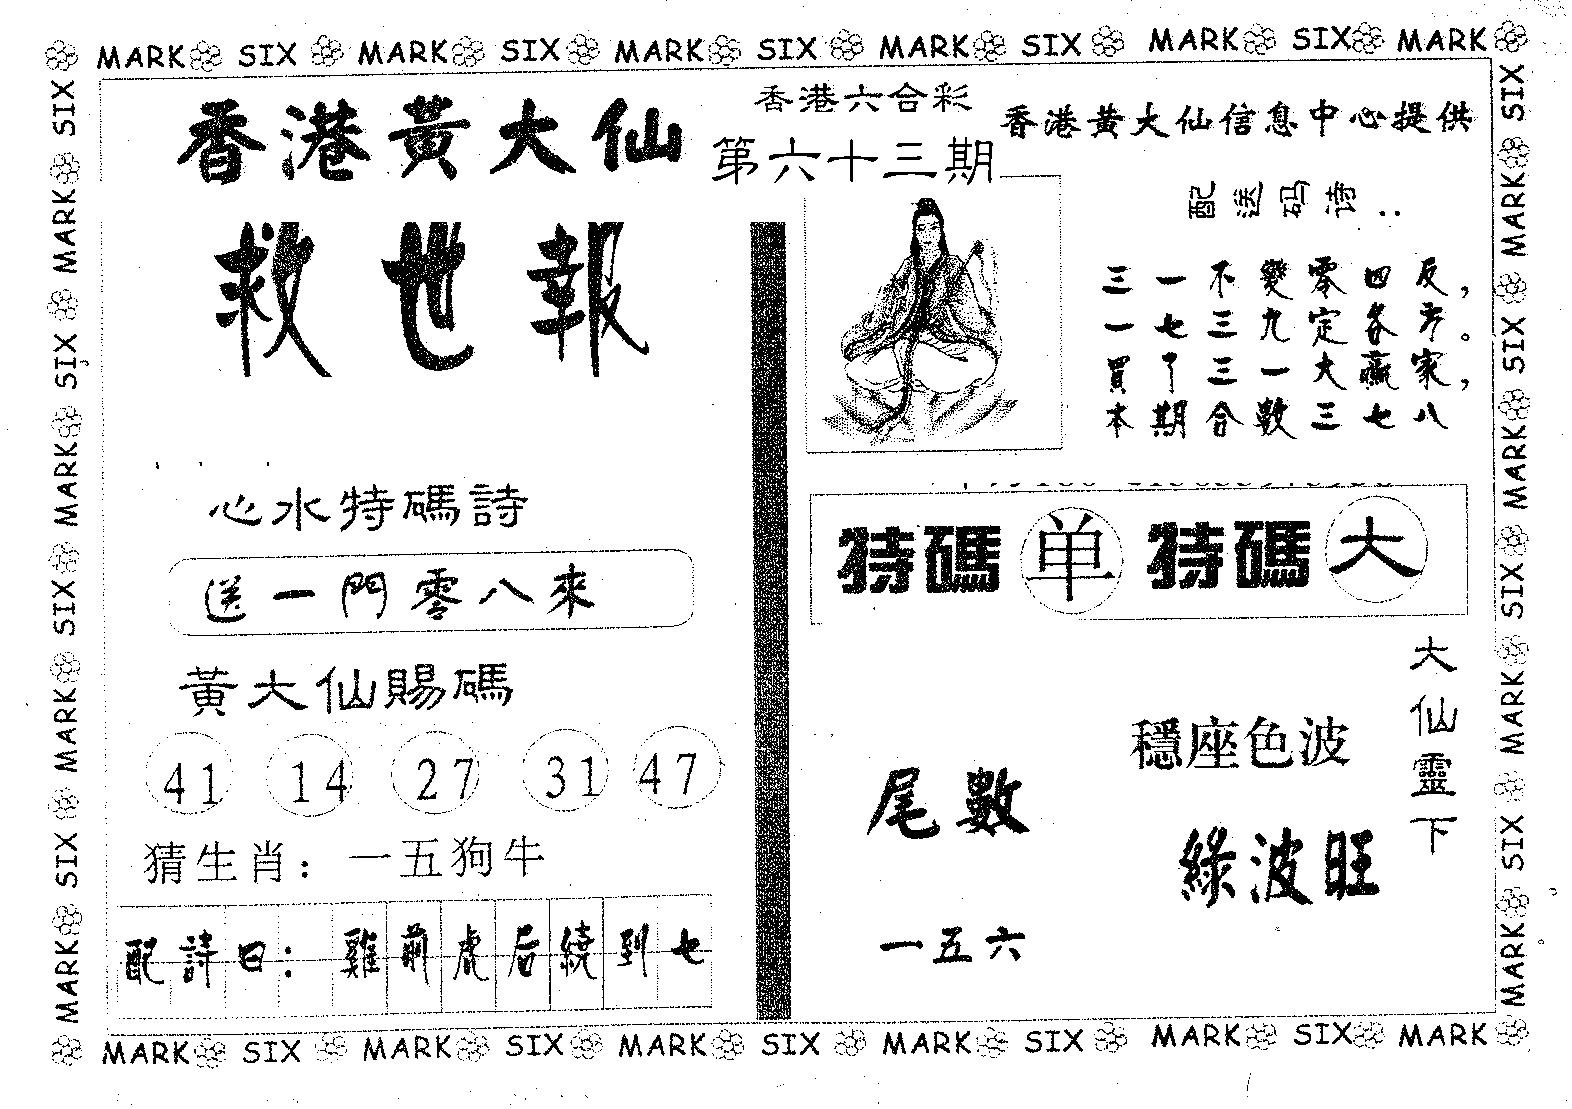 MARK SIX MARK SIX MARK SIX MARK SIX MARK SIX MARK
香港黃大仙
救世報
香港六合彩
第六十三期
香港黃大仙信息中心提供
配送码诗:
三一不變零四反，
一七三九定各方。
買了三一大贏家，
本期合數三七八
心水特碼詩
送一門零八來
黃大仙賜碼
41 14 27 31 47
猜生肖：一五狗牛
配詩曰：雞前虎后繞到七
特碼 单 特碼 大
大仙靈下
穩座色波
綠波旺
尾數
一五六
SIX MARK SIX MARK SIX MARK SIX MARK
SIX MARK SIX MARK SIX MARK SIX MARK
MARK SIX MARK SIX MARK SIX MARK SIX MARK SIX MARK